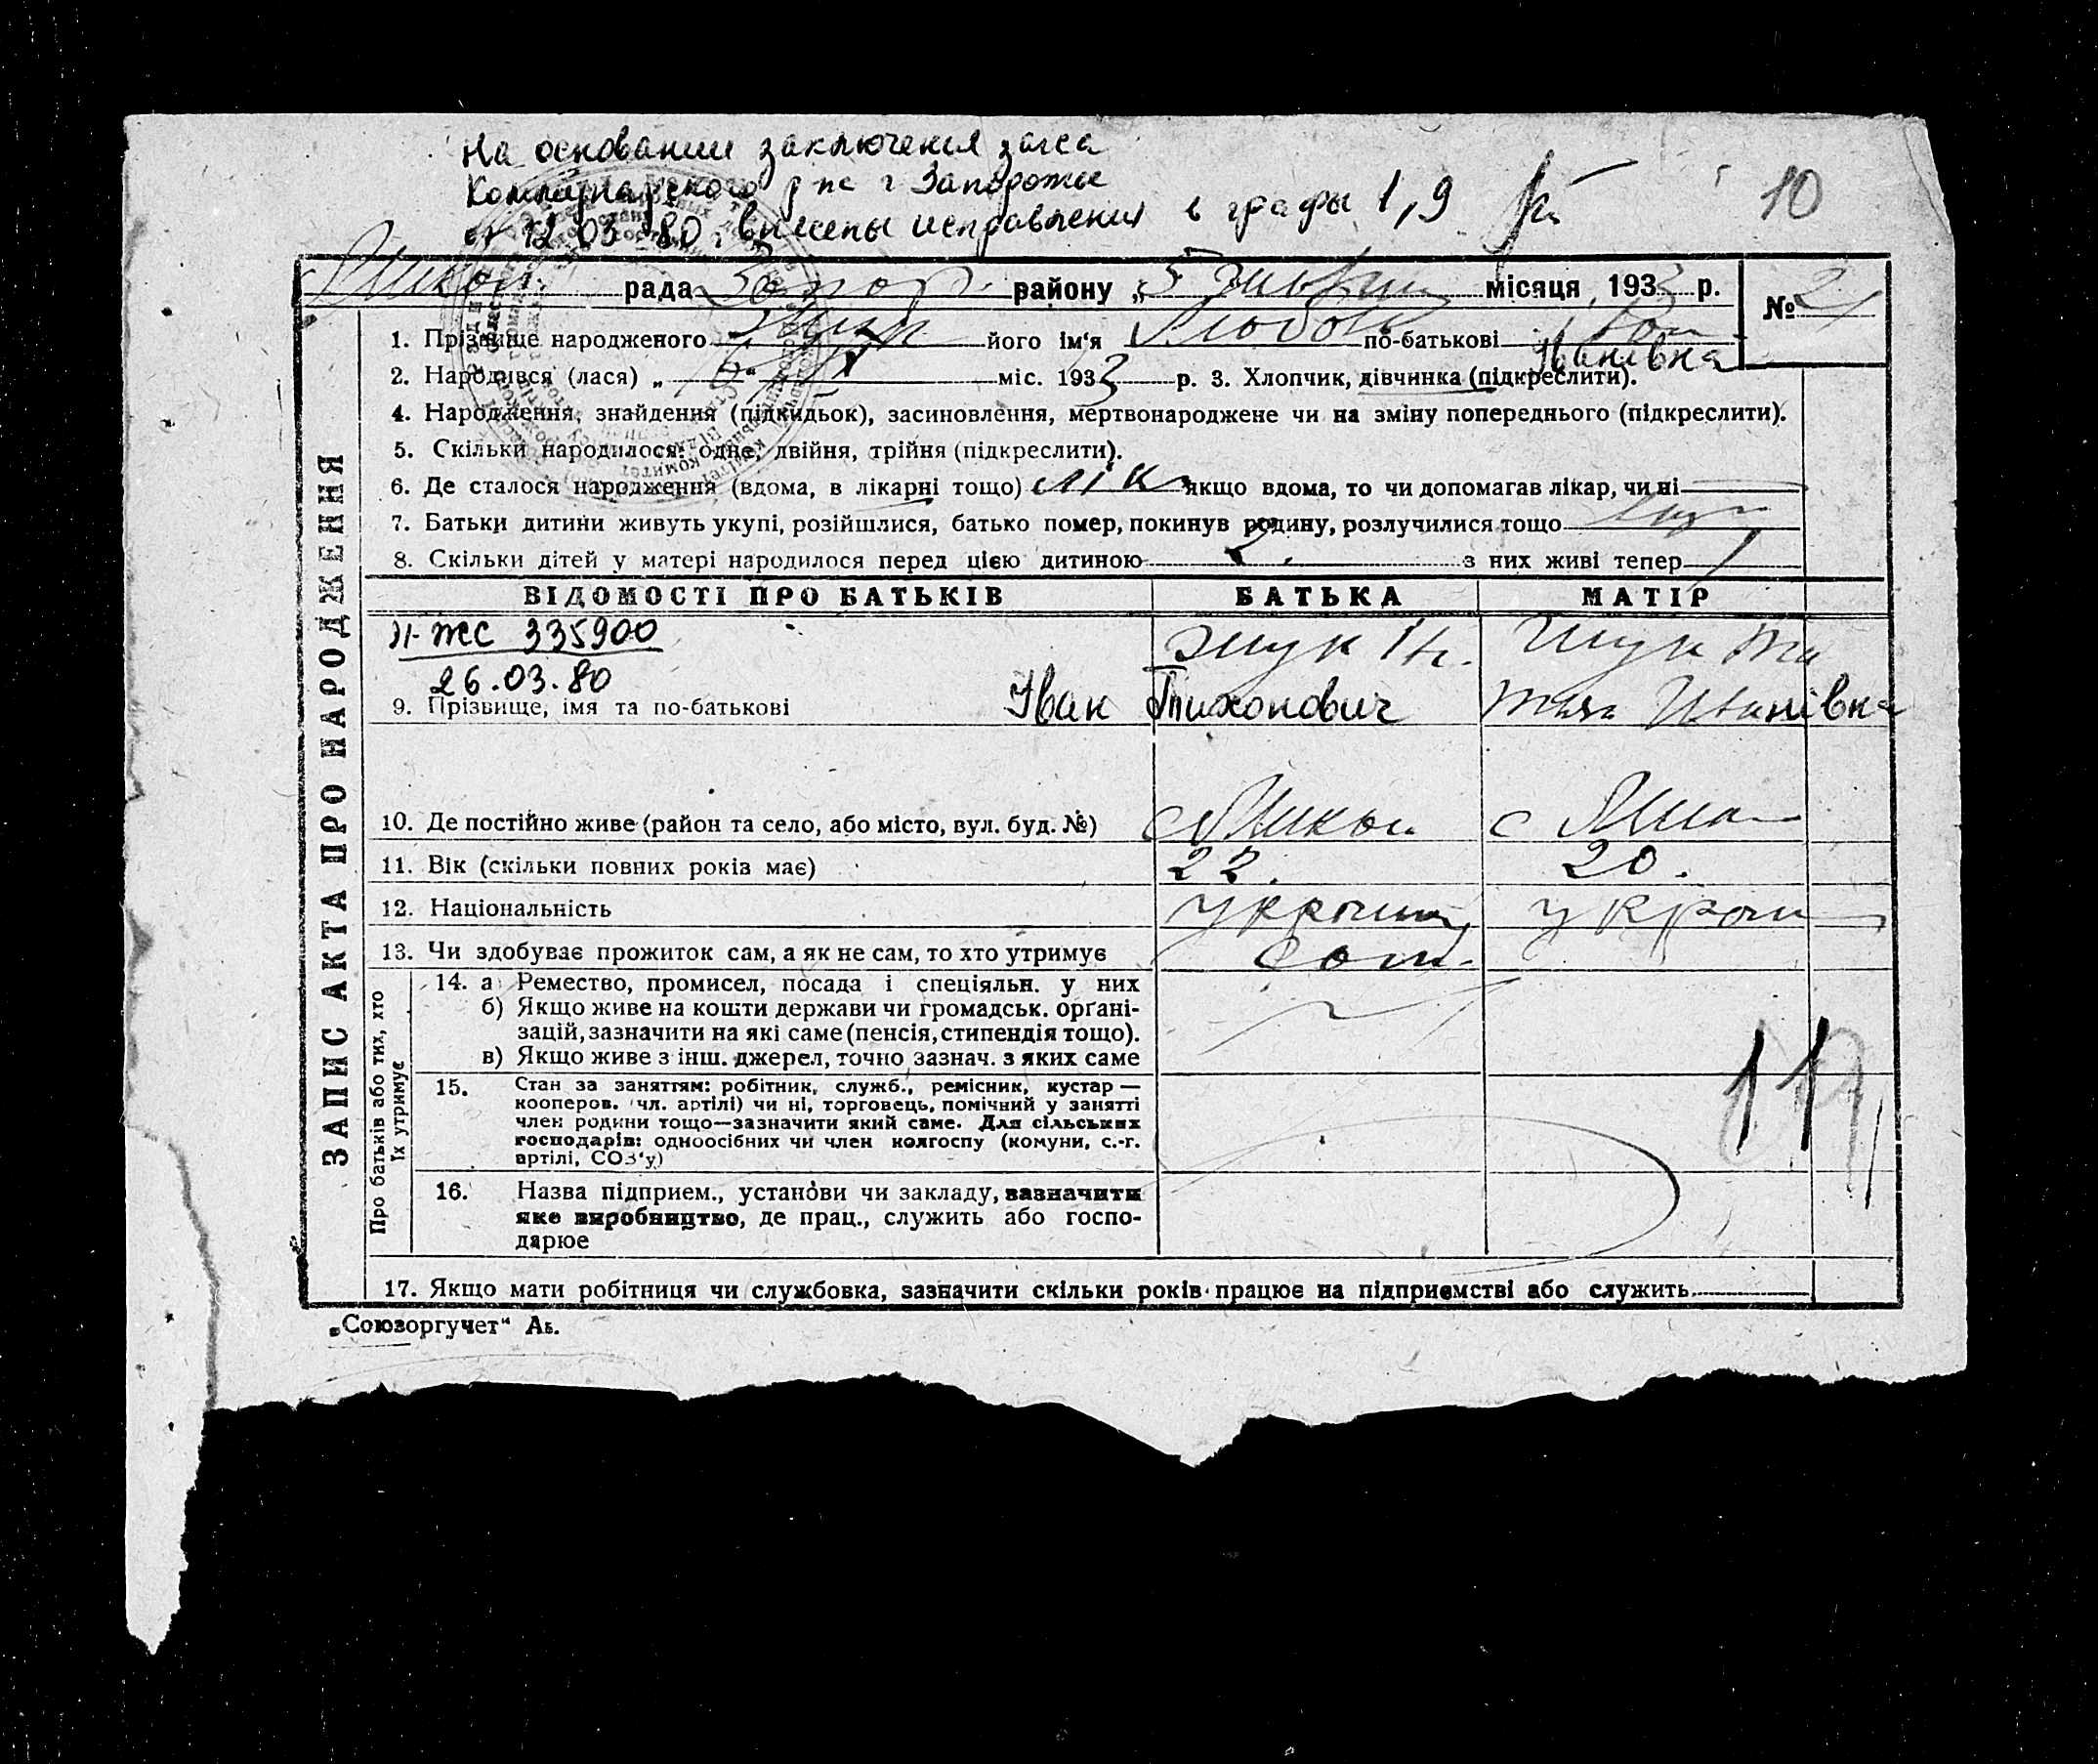 На основании заключения загса
Коммунарского р-на г Запорожье
от 12.03.80. внесены исправления в графы 1,9
10
рада Запор. району „5 місяця 1933 р. № 21
1. Прізвище народженого Жук його ім‘я Любов по-батькові Іван
Іванівна
2. Народився (лася) „ “ міс. 1933 р. 3. Хлопчик, дівчинка (підкреслити).
4. Народження, знайдення (підкидьок), засиновлення, мертвонароджене чи на зміну попереднього (підкреслити).
5. Скільки народилося: одне, двійня, трійня (підкреслити).
6. Де сталося народження (вдома, в лікарні тощо) лік якщо вдома, то чи допомагав лікар, чи ні
7. Батьки дитини живуть укупі, розійшлися, батько помер, покинув родину, розлучилися тощо
8. Скільки дітей у матері народилося перед цією дитиною 2. з них живі тепер 1
ЗАПИС АКТА ПРО НАРОДЖЕННЯ
ВІДОМОСТІ ПРО БАТЬКІВ БАТЬКА МАТІР
ІІ-ЖС 335900 Жук Ів. Жук
26.03.80
9. Прізвище, імя та по-батькові Іван Тихонович Іванівна
10. Де постійно живе (район та село, або місто, вул. буд. №) с с
11. Вік (скільки повних років має) 22. 20.
12. Національність
13. Чи здобуває прожиток сам, а як не сам, то хто утримує сам.
Про батьків або тих, хто їх утримує
14. а) Ремество, промисел, посада і спеціяльн. у них
б) Якщо живе на кошти держави чи громадськ. органі-
зацій, зазначити на які саме (пенсія, стипендія тощо).
в) Якщо живе з інш. джерел, точно зазнач. з яких саме
11
15. Стан за заняттям: робітник, служб., ремісник, кустар —
кооперов. (чл. артілі) чи ні, торговець, помічний у занятті
член родини тощо—зазначити який саме. Для сільських
господарів: одноосібних чи член колгоспу (комуни, с.-г.
артілі, СОЗ‘у)
16. Назва підприєм., установи чи закладу, зазначити
яке виробництво, де прац., служить або госпо-
дарює
17. Якщо мати робітниця чи службовка, зазначити скільки років працює на підприємстві або служить
„Союзоргучет“ Аь.